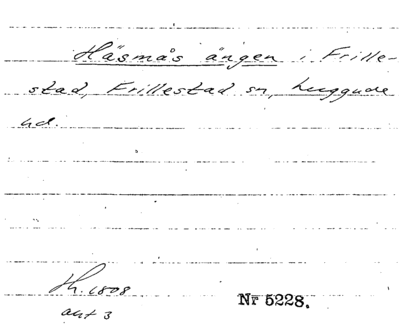 Häsmås ängen i Frille-
stad, Frillestad sn, Luggude
hd.
Th. 1808
akt 3
Nr 5228.